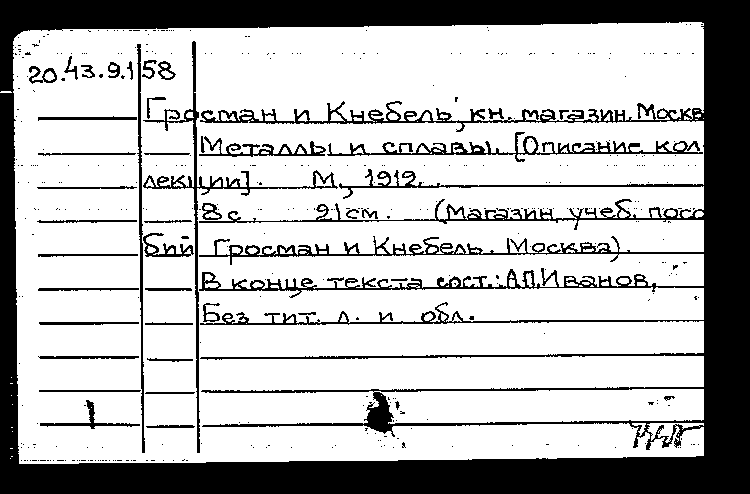 20.43.9.1 58
Гросман и Кнебель, кн. магазин. Москва
Металлы и сплавы. [Описание кол-
лекции]. М., 1912.
8 с. 21 см. (Магазин учеб. посо
бий Гросман и Кнебель. Москва).
В конце текста сост.: А.П. Иванов,
Без тит. л. и обл.
1